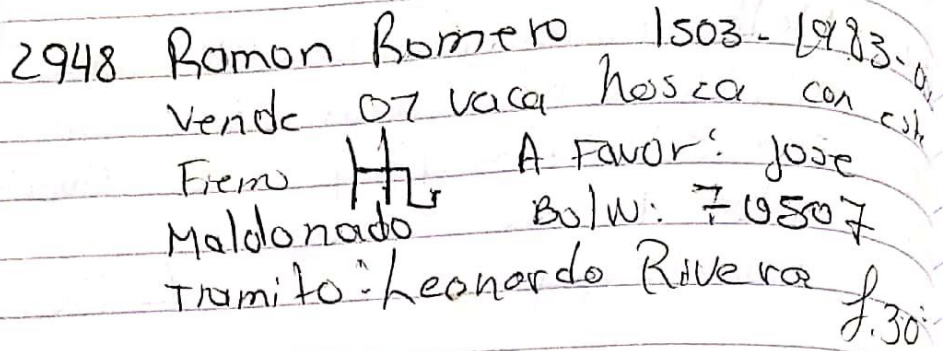 2948 Ramon Romero 1503-1983-0
Vende 01 vaca hosca con este
Fierro A Favor: Jose
Maldonado Bolw: 70507
Tramito: Leonardo Rivera
f.30